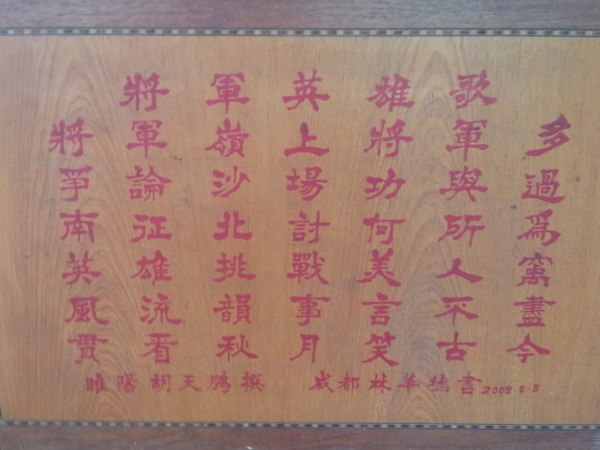 將軍英雄歌
將軍嶺上將軍多
爭論沙場功與過
南征北討何所為
英雄挑戰美人窩
風流韻事言不盡
貫看秋月笑古今
睢陽胡天鵬撰 成都林華德書 2009-8-8